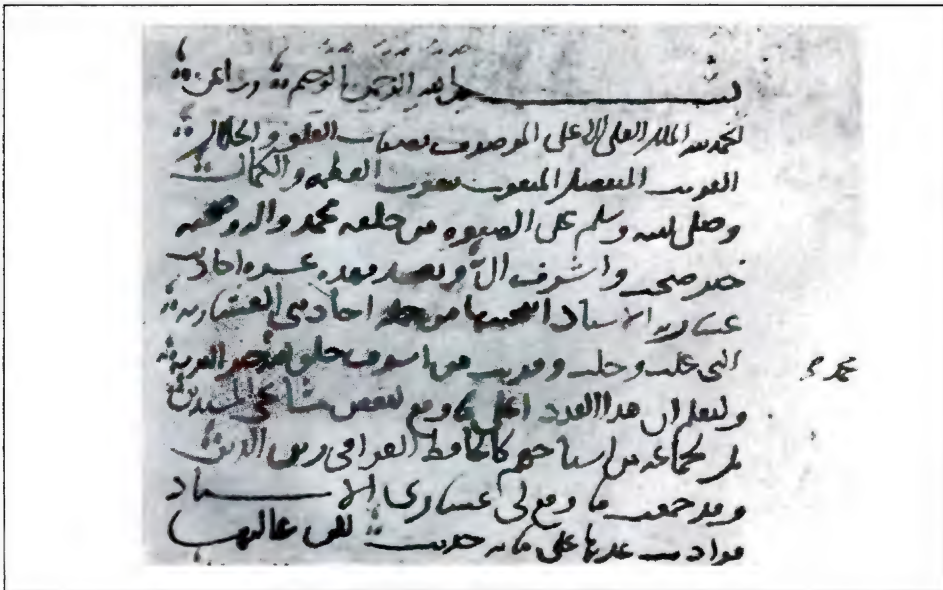 بسم الله الرحمن الرحيم وبه أعن
الحمد لله الملك العلي الأعلى الموصوف بصفات العلو والجلال
القريب المتفضل المنعوت بنعوت العظمة والكمال
وصلى الله وسلم على الصفوة من خلقه محمد وآله وصحبه
خير صحب وأشرف آل وبعد فهذه عشرة أحاديث
عشارية الإسناد انتخبتها من جملة أحاديثي العشارية
التي علت وحلت وقربت من أشرف خلق الله خير البرية
وليعلم أن هذا العدد أعلى ما وقع لبعض مشايخي المسندين
بل لجماعة من أشياخهم كالحافظ العراقي وزين الدين
وقد جمعت ما وقع لي عشاري الإسناد
فزادت عدتها على مائة حديث لكن غالبها
محمد